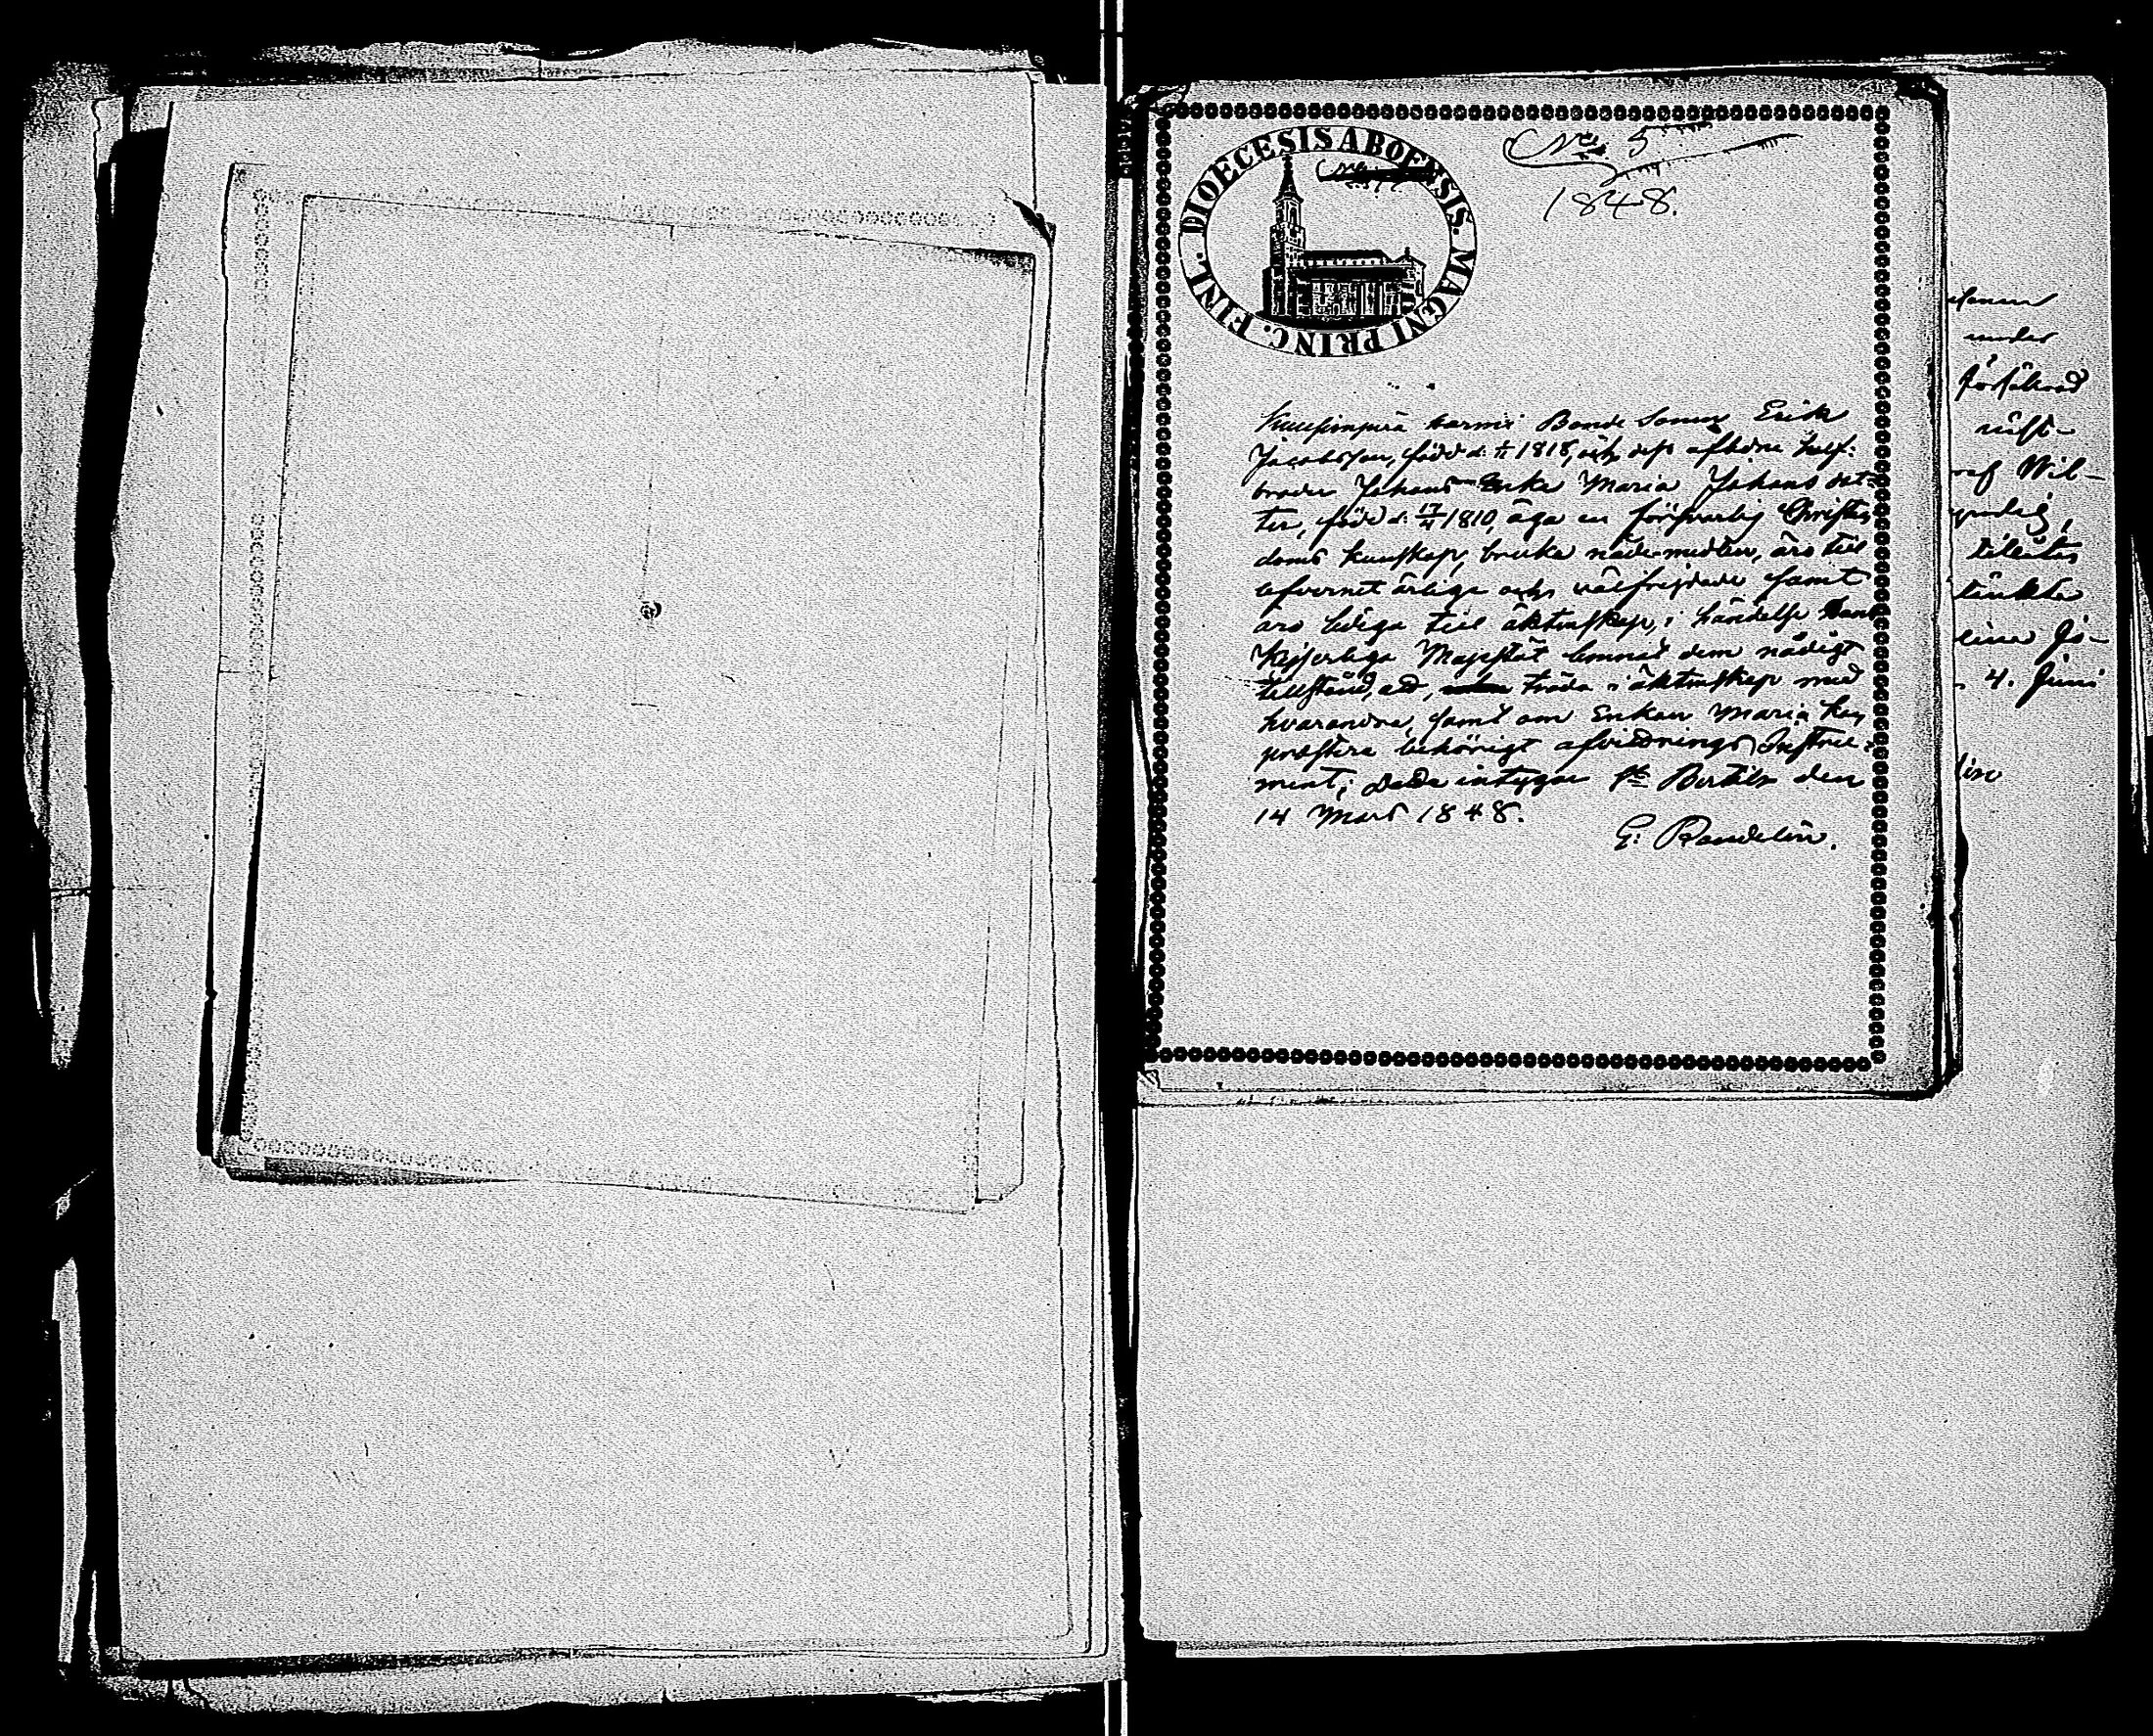 DIOECESIS ABOENSIS. MAGNI PRINC. FINL.
No. 5
1848.
Bonde Sonen Erik
Jacobsson, född d. 1818, och dess aflidne half-
broder Johans Enka Maria Johans dot-
ter, född d. 17/4 1810, äga en försvarlig Christen
doms kunskap, bruka nådemedlen, äro till
lefvernet ärliga och välfrejdade samt
äro lediga till äktenskap, i händelse Hans
Kejserliga Majestät lemnat dem nådigt
tillstånd, att, träda i äktenskap med
hvarandra, samt om Enkan Maria kan
prestera behörigt afvittrings Instru-
ment; detta intygar St Bertils den
14 Mars 1848.
G: Randelin.
under
af Wil-
4. Juni